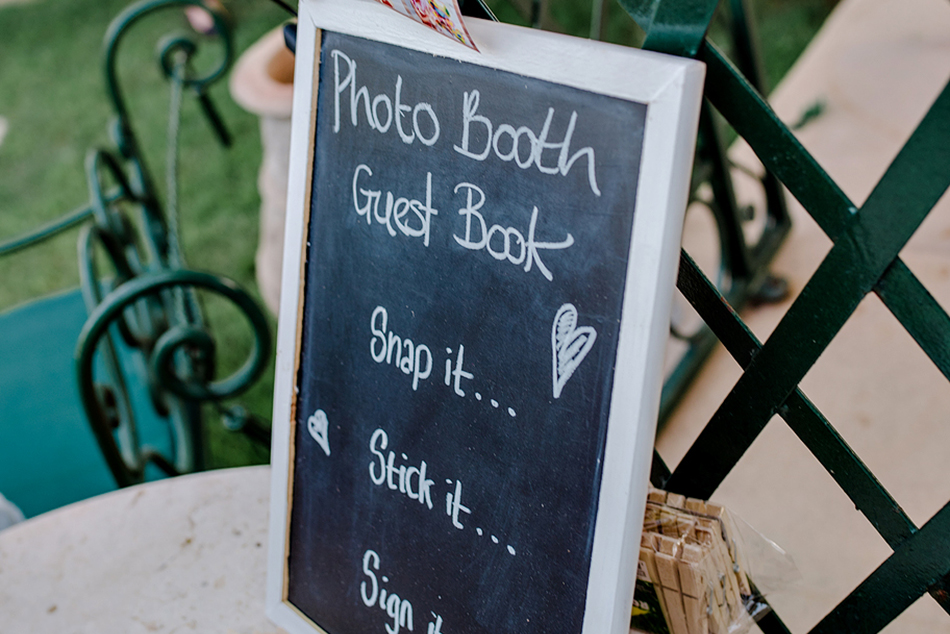 Photo Booth
Guest Book
Snap it...
Stick it...
Sign it